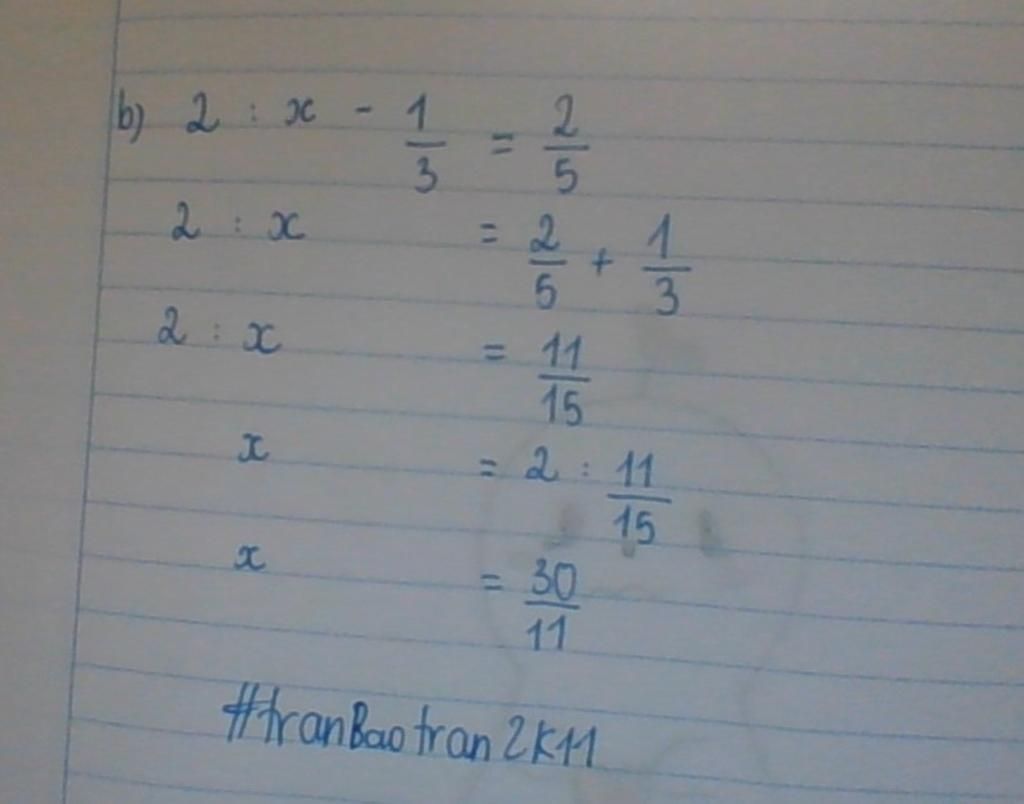 b) 2 : x - 1/3 = 2/5
2 : x = 2/5 + 1/3
2 : x = 11/15
x = 2 : 11/15
x = 30/11
#tranBaotran2K11